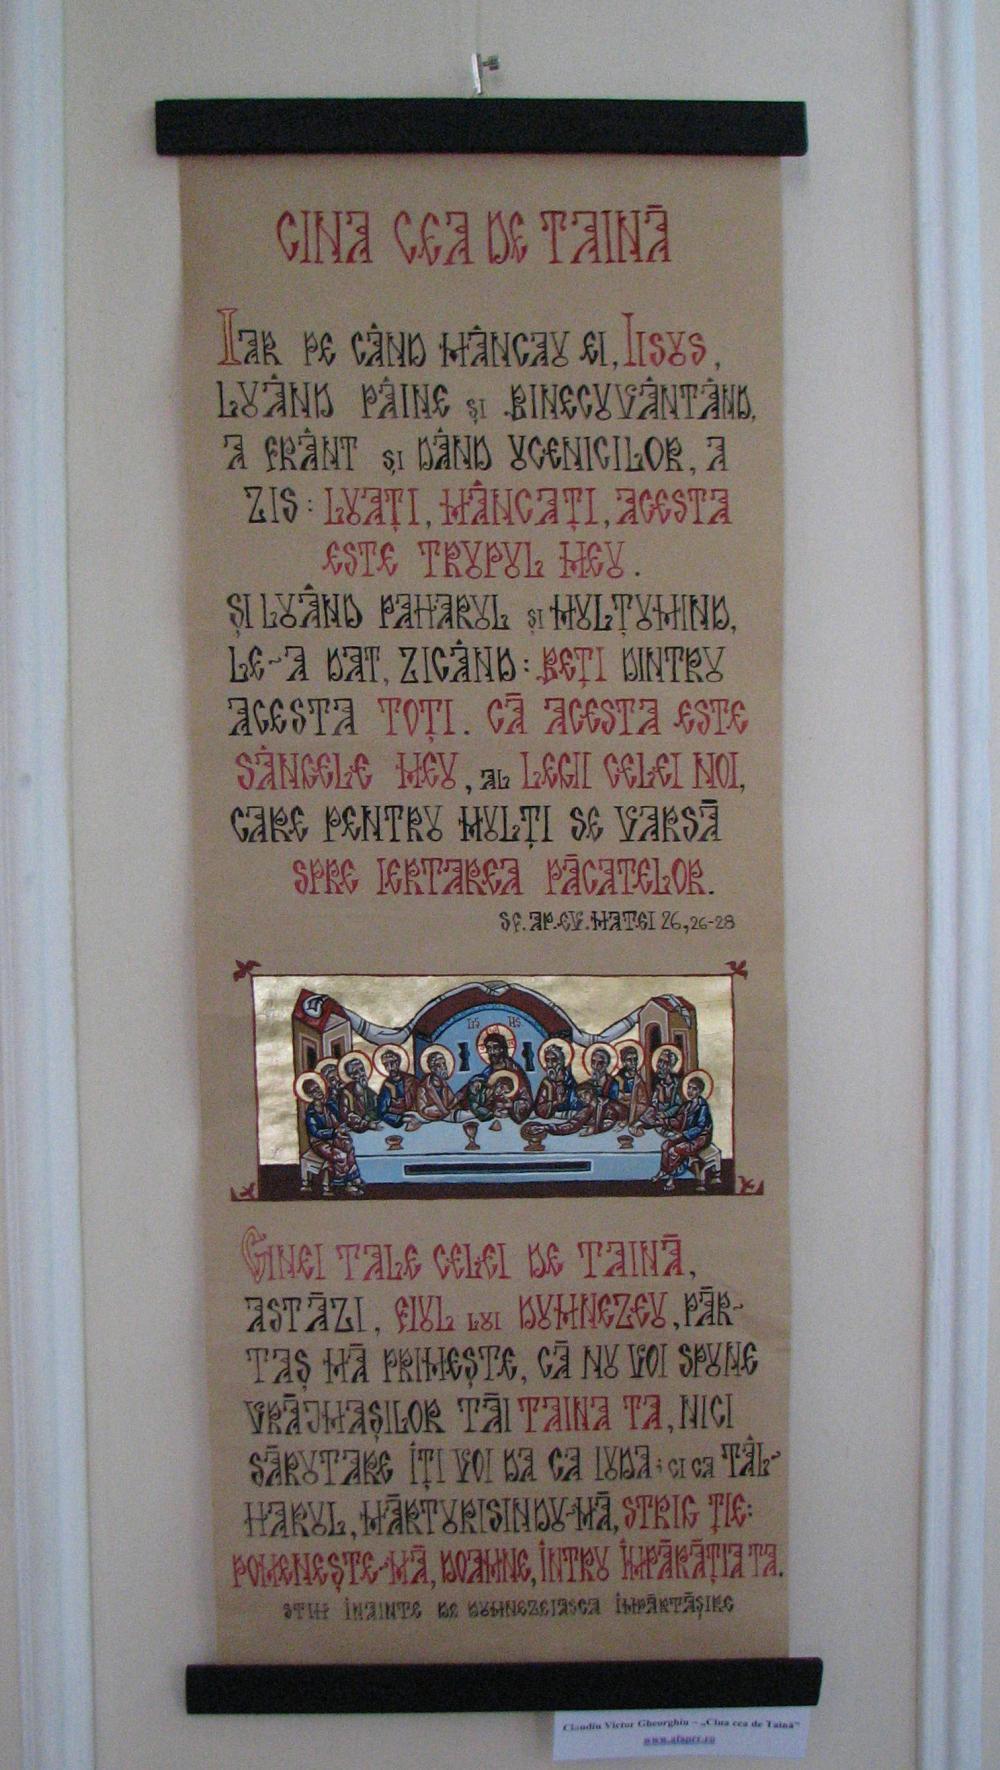 CINA CEA DE TAINĀ
IAR PE CÂND MÂNCAU EI, IISUS,
LUÂND PÂINE ȘI BINECUVÂNTÂND,
A FRÂNT ȘI DÂND UCENICILOR, A
ZIS: LUAȚI, MÂNCAȚI, ACESTA
ESTE TRUPUL MEU.
ȘI LUÂND PAHARUL ȘI MULȚUMIND,
LE-A DAT, ZICÂND: BEȚI DINTRU
ACESTA TOȚI. CĀ ACESTA ESTE
SÂNGELE MEU, AL LEGII CELEI NOI,
CARE PENTRU MULȚI SE VARSĀ
SPRE IERTAREA PĀCATELOR.
SF. AP. EV. MATEI 26, 26-28
CINEI TALE CELEI DE TAINĀ,
ASTĀZI, FIUL LUI DUMNEZEU, PĀR-
TAȘ MĀ PRIMEȘTE, CĀ NU VOI SPUNE
VRĀJMAȘILOR TĀI TAINA TA, NICI
SĀRUTARE ÎȚI VOI DA CA IUDA; CI CA TÂL-
HARUL, MĀRTURISINDU-MĀ, STRIG ȚIE:
POMENEȘTE-MĀ, DOAMNE, ÎNTRU ÎMPĀRĀȚIA TA.
STIH ÎNAINTE DE DUMNEZEIASCA ÎMPĀRTĀȘIRE
Claudiu Victor Gheorghiu – „Cina cea de Taină”
www.afapcr.ro